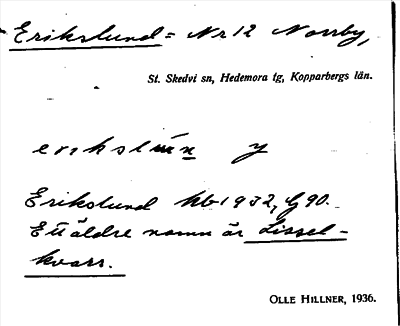 Erikslund = Nr 12 Norrby,
St. Skedvi sn, Hedemora tg, Kopparbergs län.
erikslun y
Erikslund hb 1932, G 90.
Ett äldre namn är Lissel-
kvarr.
OLLE HILLNER, 1936.